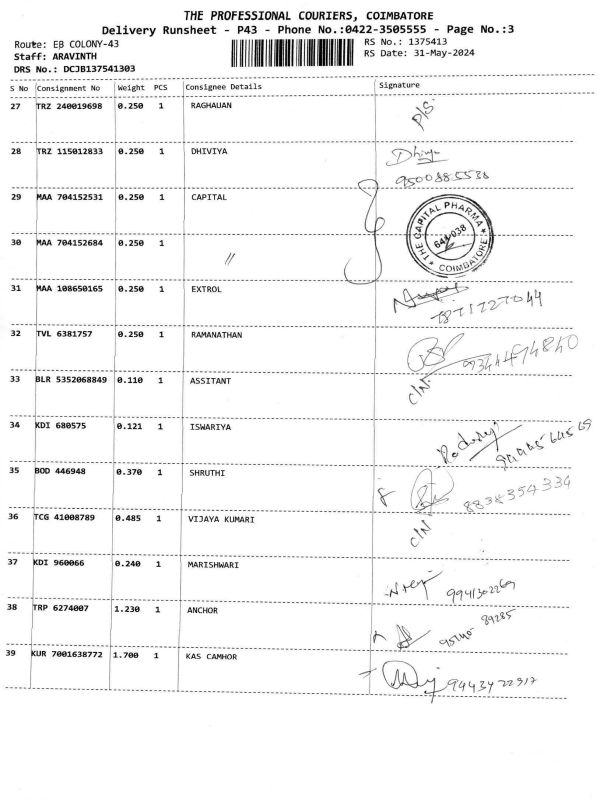 THE PROFESSIONAL COURIERS, COIMBATORE
Delivery Runsheet - P43 - Phone No.:0422-3505555 - Page No.:3
Route: EB COLONY-43 RS No.: 1375413
Staff: ARAVINTH RS Date: 31-May-2024
DRS No.: DCJB137541303
S No Consignment No Weight PCS Consignee Details Signature
27 TRZ 240019698 0.250 1 RAGHAUAN P/S
28 TRZ 115012833 0.250 1 DHIVIYA Dhivya
9500885538
29 MAA 704152531 0.250 1 CAPITAL
★ THE CAPITAL PHARMA ★ COIMBATORE
641-038
30 MAA 704152684 0.250 1 //
31 MAA 108650165 0.250 1 EXTROL
7871727044
32 TVL 6381757 0.250 1 RAMANATHAN
9344474840
33 BLR 5352068849 0.110 1 ASSITANT C/N
34 KDI 680575 0.121 1 ISWARIYA
35 BOD 446948 0.370 1 SHRUTHI
8838354334
36 TCG 41008789 0.485 1 VIJAYA KUMARI C/N
37 KDI 960066 0.240 1 MARISHWARI
9941302269
38 TRP 6274007 1.230 1 ANCHOR
89285
39 KUR 7001638772 1.700 1 KAS CAMHOR
9443422917